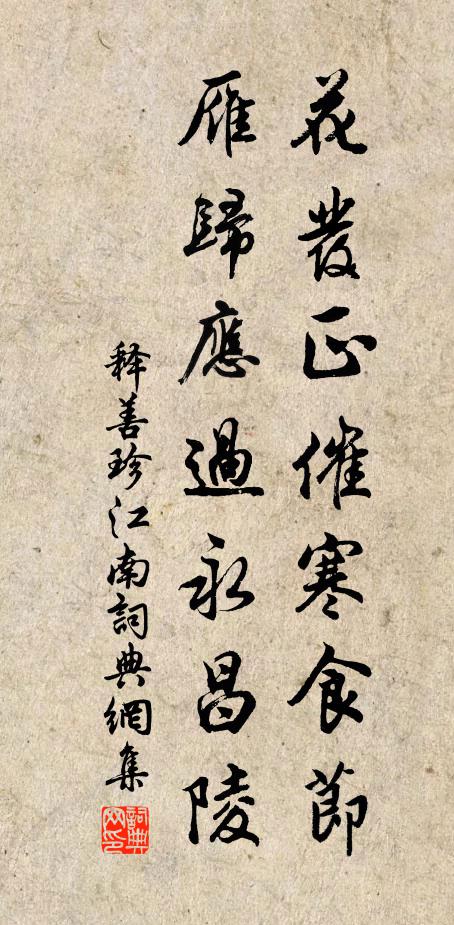 花發正催寒食節
雁歸應過永昌陵
释善珍江南詞典網集
詞典网印